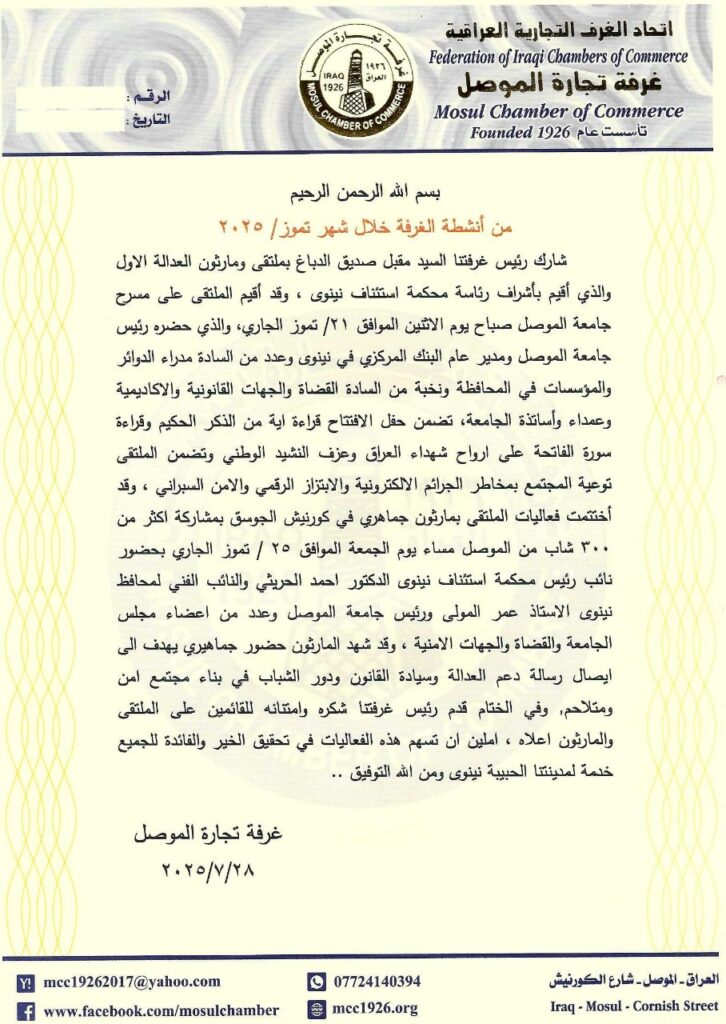 اتحاد الغرف التجارية العراقية
Federation of Iraqi Chambers of Commerce
غرفة تجارة الموصل
Mosul Chamber of Commerce
Founded 1926 تأسست عام
غرفة تجارة الموصل
IRAQ ١٩٢٦
1926 العراق
MOSUL CHAMBER OF COMMERCE
الرقم :
التاريخ :
بسم الله الرحمن الرحيم
من أنشطة الغرفة خلال شهر تموز/ ٢٠٢٥
شارك رئيس غرفتنا السيد مقبل صديق الدباغ بملتقى ومارثون العدالة الاول
والذي أقيم بأشراف رئاسة محكمة استئناف نينوى ، وقد أقيم الملتقى على مسرح
جامعة الموصل صباح يوم الاثنين الموافق ٢١/ تموز الجاري، والذي حضره رئيس
جامعة الموصل ومدير عام البنك المركزي في نينوى وعدد من السادة مدراء الدوائر
والمؤسسات في المحافظة ونخبة من السادة القضاة والجهات القانونية والاكاديمية
وعمداء وأساتذة الجامعة، تضمن حفل الافتتاح قراءة اية من الذكر الحكيم وقراءة
سورة الفاتحة على ارواح شهداء العراق وعزف النشيد الوطني وتضمن الملتقى
توعية المجتمع بمخاطر الجرائم الالكترونية والابتزاز الرقمي والامن السبراني ، وقد
أختتمت فعاليات الملتقى بمارثون جماهري في كورنيش الجوسق بمشاركة اكثر من
٣٠٠ شاب من الموصل مساء يوم الجمعة الموافق ٢٥ / تموز الجاري بحضور
نائب رئيس محكمة استئناف نينوى الدكتور احمد الحريثي والنائب الفني لمحافظ
نينوى الاستاذ عمر المولى ورئيس جامعة الموصل وعدد من اعضاء مجلس
الجامعة والقضاة والجهات الامنية ، وقد شهد المارثون حضور جماهيري يهدف الى
ايصال رسالة دعم العدالة وسيادة القانون ودور الشباب في بناء مجتمع امن
ومتلاحم, وفي الختام قدم رئيس غرفتنا شكره وامتنانه للقائمين على الملتقى
والمارثون اعلاه ، املين ان تسهم هذه الفعاليات في تحقيق الخير والفائدة للجميع
خدمة لمدينتنا الحبيبة نينوى ومن الله التوفيق ..
غرفة تجارة الموصل
٢٠٢٥/٧/٢٨
mcc19262017@yahoo.com
07724140394
العراق - الموصل - شارع الكورنيش
www.facebook.com/mosulchamber
mcc1926.org
Iraq - Mosul - Cornish Street